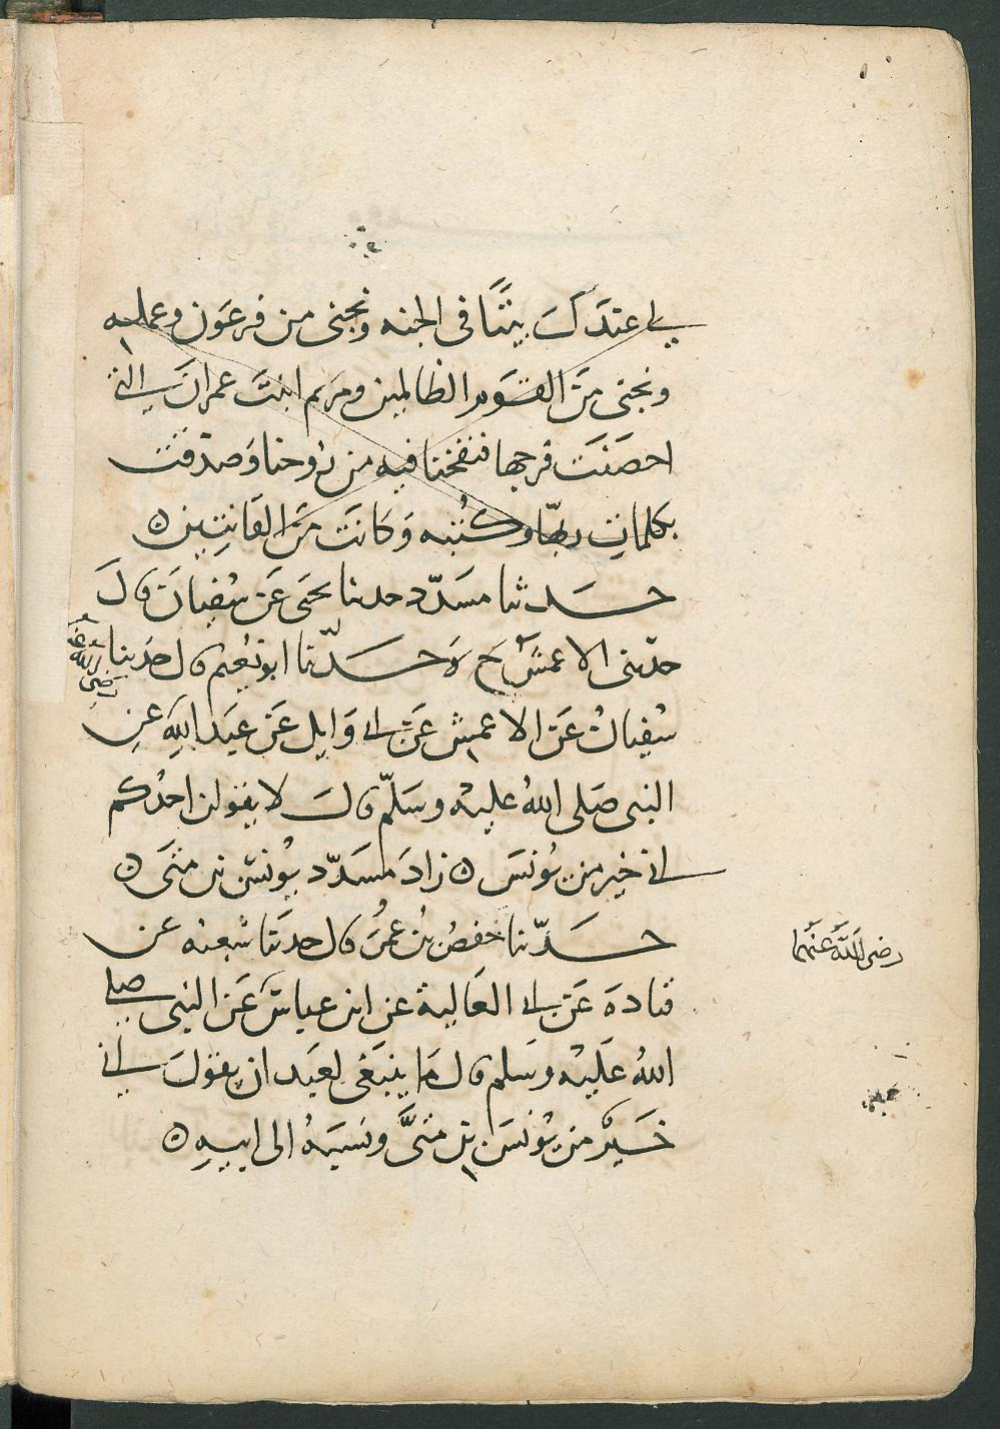 لي عندك بيتًا في الجنه ونجني من فرعون وعمله
ونجني من القوم الظالمين ومريم ابنت عمران التي
احصنت فرجها فنفخنا فيه من روحنا وصدقت
بكلمات ربها وكتبه وكانت من القانتين ٥
حدثنا مسدّد حدثنا يحيى عن سفيان قال
حدثني الاعمش ح وحدّثنا ابو نعيم قال حدثنا
سفيان عن الاعمش عن ابي وايل عن عبد الله عن
رضي الله عنه
النبي صلى الله عليه وسلّم قال لا يقولن احدكم
اني خير من يونس ٥ زاد مسدّد يونس بن متى ٥
حدّثنا حفص بن عمر قال حدثنا شعبه عن
قتادة عن ابي العالية عن ابن عباس عن النبي صلى
رضي الله عنهما
الله عليه وسلم قال ما ينبغي لعبد ان يقول اني
خير من يونس بن متىّ ونسبه الى ابيه ٥